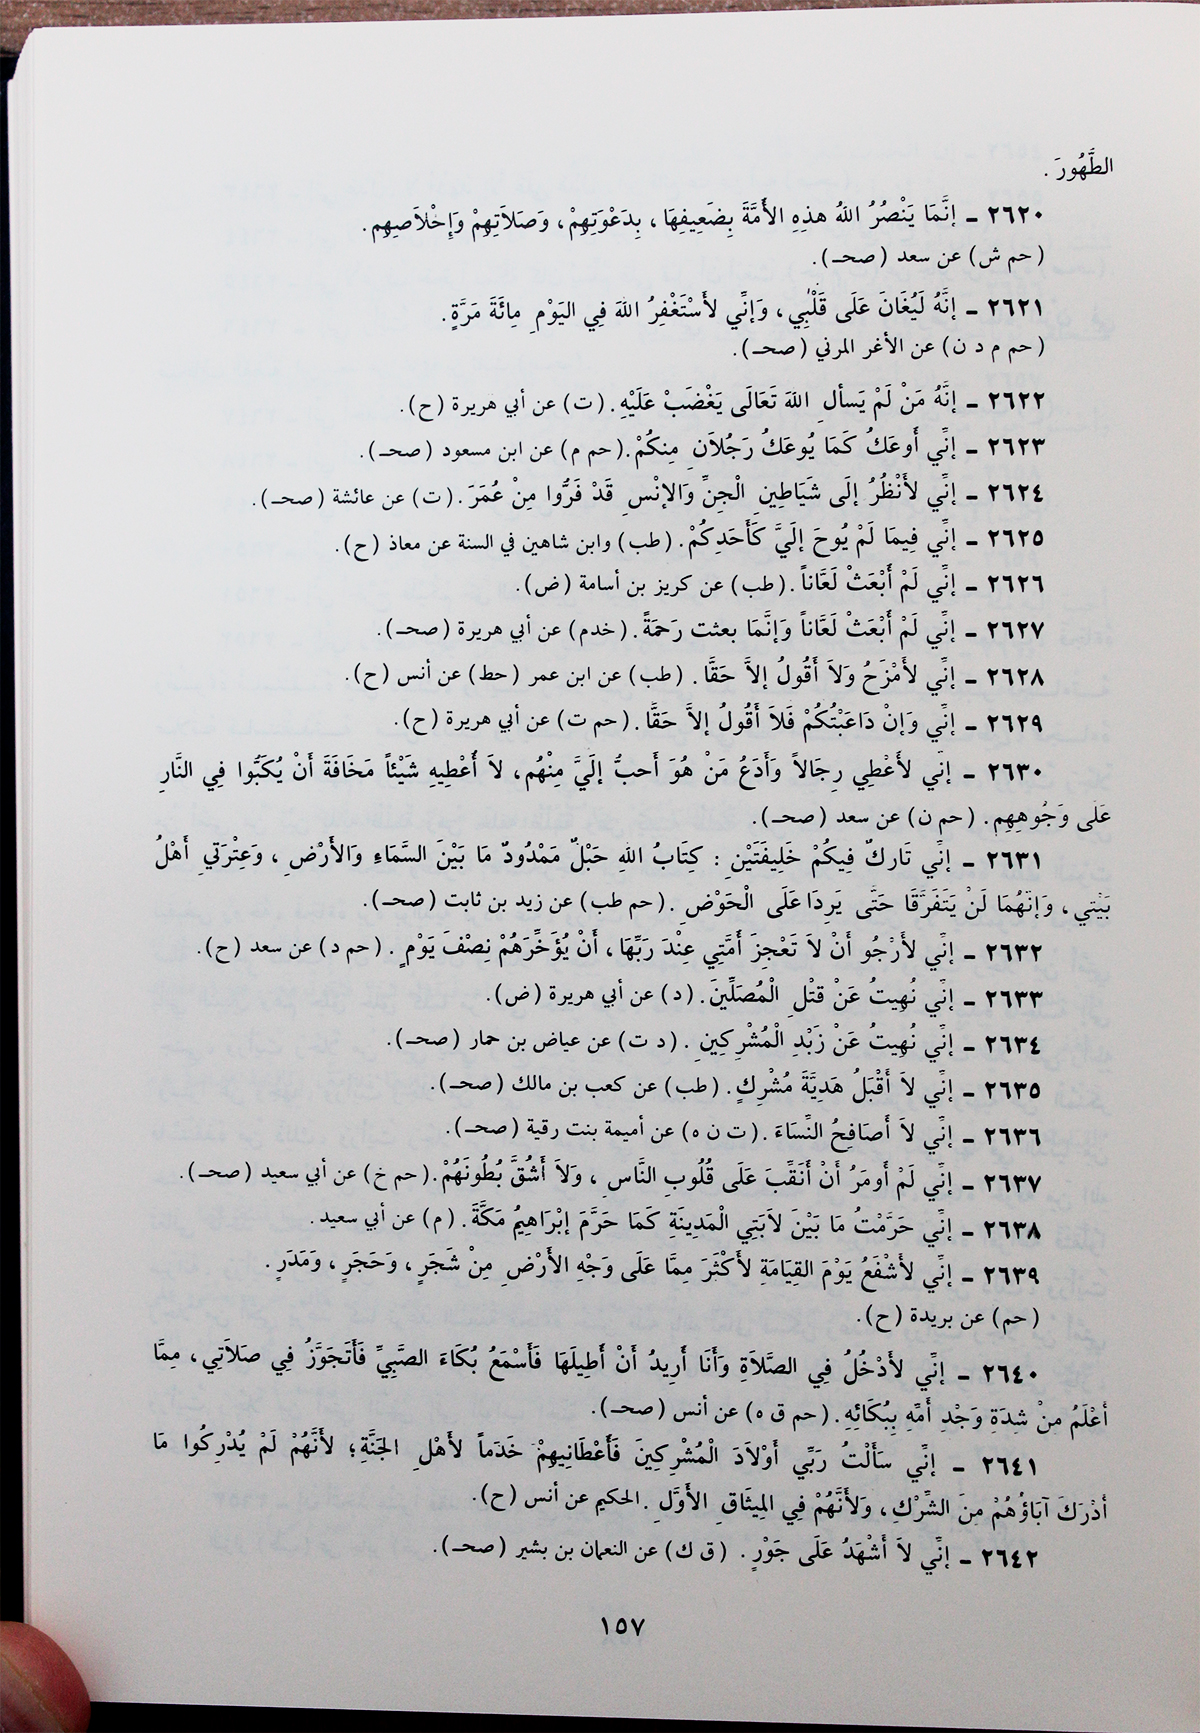 الطَّهُورَ .
٢٦٢٠ - إنَّمَا يَنْصُرُ اللهُ هذِهِ الأمَّةَ بِضَعِيفِهَا، بِدَعْوَتِهِمْ، وَصَلاَتِهِمْ وَإِخْلاَصِهِم.
(حم ش) عن سعد (صحـ).
٢٦٢١ - إنَّهُ لَيُغَانَ عَلَى قَلْبِي، وَإنِّي لأَسْتَغْفِرُ اللهَ فِي اليَوْمِ مِائَةَ مَرَّةٍ.
(حم م د ن) عن الأغر المرني (صحـ).
٢٦٢٢ - إنَّهُ مَنْ لَمْ يَسألِ اللهَ تَعَالَى يَغْضَبْ عَلَيْهِ. (ت) عن أبي هريرة (ح).
٢٦٢٣ - إنِّي أوعَكُ كَمَا يُوعَكُ رَجُلاَنِ مِنكُمْ. (حم م) عن ابن مسعود (صحـ).
٢٦٢٤ - إنِّي لأَنْظُرُ إلَى شَيَاطِينِ الْجِنِّ وَالإنْسِ قَدْ فَرُّوا مِنْ عُمَرَ. (ت) عن عائشة (صحـ).
٢٦٢٥ - إنِّي فِيمَا لَمْ يُوحَ إلَيَّ كَأَحَدِكُمْ. (طب) وابن شاهين في السنة عن معاذ (ح).
٢٦٢٦ - إنِّي لَمْ أَبْعَثْ لَعَّاناً. (طب) عن كريز بن أسامة (ض).
٢٦٢٧ - إنِّي لَمْ أَبْعَثْ لَعَّاناً وَإنَّمَا بعثت رَحمَةً. (خدم) عن أبي هريرة (صحـ).
٢٦٢٨ - إنِّي لأَمْزَحُ وَلاَ أَقُولُ إلاَّ حَقًّا. (طب) عن ابن عمر (حط) عن أنس (ح).
٢٦٢٩ - إنِّي وَإنْ دَاعَبْتُكُمْ فَلاَ أَقُولُ إلاَّ حَقًّا. (حم ت) عن أبي هريرة (ح).
٢٦٣٠ - إنِّي لأَعْطِي رِجَالاً وَأَدَعُ مَنْ هُوَ أَحبُّ إلَيَّ مِنْهُم، لاَ أُعْطِيهِ شَيْئاً مَخَافَةَ أَنْ يُكَبُّوا فِي النَّارِ
عَلى وَجُوهِهِم. (حم ن) عن سعد (صحـ).
٢٦٣١ - إنِّي تَارِكٌ فِيكُمْ خَلِيفَتَيْنِ : كِتَابُ اللهِ حَبْلٌ مَمْدُودٌ مَا بَيْنَ السَّمَاءِ وَالأَرْضِ، وَعِتْرَتِي أَهْلُ
بَيْتِي، وَإنّهُمَا لَنْ يَتَفَرَّقَا حَتَّى يَرِدَا عَلَى الْحَوْضِ. (حم طب) عن زيد بن ثابت (صحـ).
٢٦٣٢ - إنِّي لأَرْجُو أَنْ لاَ تَعْجِزَ أمَّتِي عِنْدَ رَبِّهَا، أَنْ يُؤَخِّرَهُمْ نِصْفَ يَوْمٍ. (حم د) عن سعد (ح).
٢٦٣٣ - إنِّي نُهِيتُ عَنْ قَتْلِ الْمُصَلِّينَ. (د) عن أبي هريرة (ض).
٢٦٣٤ - إنِّي نُهِيتُ عَنْ زَبْدِ الْمُشْرِكِينِ. (د ت) عن عياض بن حمار (صحـ).
٢٦٣٥ - إنِّي لاَ أَقْبَلُ هَدِيَّةَ مُشْرِكٍ. (طب) عن كعب بن مالك (صحـ).
٢٦٣٦ - إنِّي لاَ أَصَافِحُ النِّسَاءَ. (ت ن ه) عن أميمة بنت رقية (صحـ).
٢٦٣٧ - إنِّي لَمْ أومَرُ أَنْ أَنَقِّبَ عَلَى قُلُوبِ النَّاسِ، وَلاَ أَشُقَّ بُطُونَهُمْ. (حم خ) عن أبي سعيد (صحـ).
٢٦٣٨ - إنِّي حَرَّمْتُ مَا بَيْنَ لاَبَتِي الْمَدِينَةِ كَمَا حَرَّمَ إبْرَاهِيمُ مَكَّةَ. (م) عن أبي سعيد.
٢٦٣٩ - إنِّي لأَشْفَعُ يَوْمَ القِيَامَةِ لأَكْثَرَ مِمَّا عَلَى وَجْهِ الأَرْضِ مِنْ شَجَرٍ، وَحَجَرٍ، وَمَدَرٍ.
(حم) عن بريدة (ح).
٢٦٤٠ - إنِّي لأَدْخُلُ فِي الصَّلاَةِ وَأَنَا أَرِيدُ أَنْ أَطِيلَهَا فَأَسْمَعُ بُكَاءَ الصَّبِيِّ فَأَتَجَوَّزُ فِي صَلاَتِي، مِمَّا
أَعْلَمُ مِنْ شِدَةِ وَجْدِ أمِّهِ بِبُكَائِهِ. (حم ق ه) عن أنس (صحـ).
٢٦٤١ - إنِّي سَأَلْتُ رَبِّي أَوْلاَدَ الْمُشْرِكِينَ فَأَعْطَانِيهِمْ خَدَماً لأَهْلِ الجَنَّةِ؛ لأَنَّهُمْ لَمْ يُدْرِكُوا مَا
أَدْرَكَ آبَاؤُهُمْ مِنَ الشِّرْكِ، وَلأَنَّهُمْ فِي المِيثَاقِ الأَوَّلِ. الحكيم عن أنس (ح).
٢٦٤٢ - إنِّي لاَ أَشْهَدُ عَلَى جَوْرٍ. (ق ك) عن النعمان بن بشير (صحـ).
١٥٧